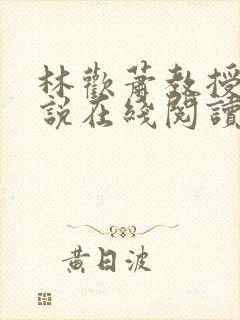 林歡蕭教授
說在綫閱讀
黃日波